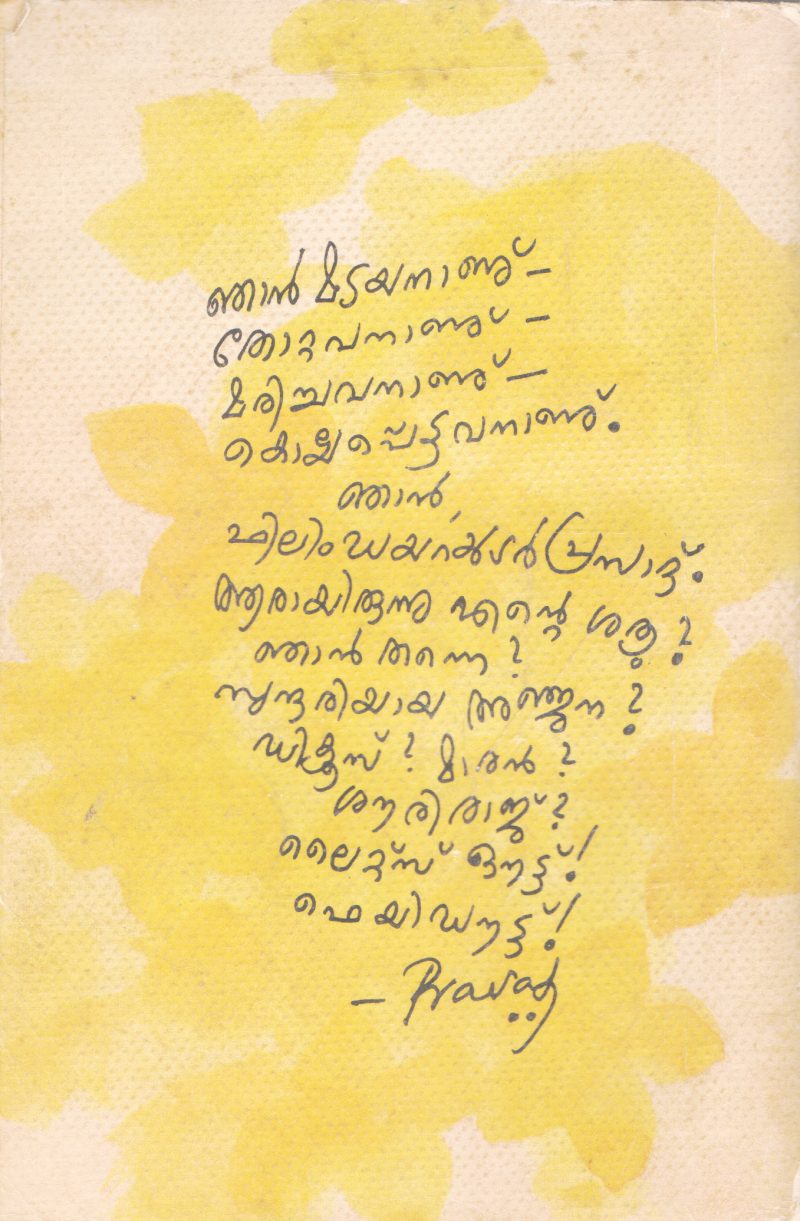 ഞാൻ മടയനാണു് –
തോറ്റവനാണു് –
മരിച്ചവനാണു് –
കൊല്ലപ്പെട്ടവനാണു്.
ഞാൻ,
ഫിലിംഡയറക്ടർ പ്രസാദ്.
ആരായിരുന്നു എന്റെ ശത്രു?
ഞാൻ തന്നെ?
സുന്ദരിയായ അഞ്ജന?
ഡിക്രൂസ്? മാരൻ?
ശൗരിരാജ്?
ലൈറ്റ്സ് ഔട്ട്!
ഫെയിഡൗട്ട്!
– Prasad